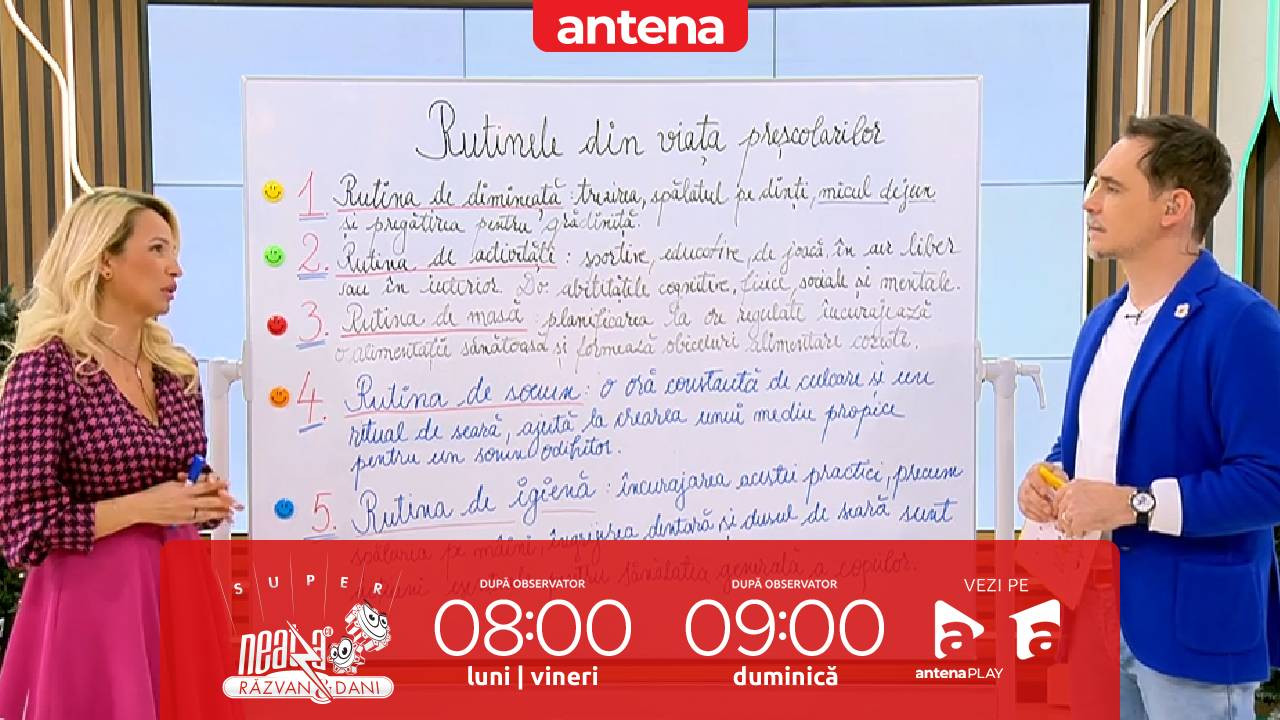 antena
Rutinele din viața preșcolarilor
1. Rutina de dimineață: trezirea, spălatul pe dinți, micul dejun
și pregătirea pentru grădiniță.
2. Rutina de activități: sportive, educative, de joacă, în aer liber
sau în interior. Dez. abilitățile cognitive, fizice, sociale și mentale.
3. Rutina de masă: planificarea la ore regulate încurajează
o alimentație sănătoasă și formează obiceiuri alimentare corecte.
4. Rutina de somn: o oră constantă de culcare și un
ritual de seară, ajută la crearea unui mediu propice
pentru un somn odihnitor.
5. Rutina de igienă: încurajarea acestei practici, precum
spălarea pe mâini, îngrijirea dentară și dușul de seară sunt
pentru sănătatea generală a copiilor.
SUPER
neatza
RĂZVAN & DANI
DUPĂ OBSERVATOR
08:00
luni | vineri
DUPĂ OBSERVATOR
09:00
duminică
VEZI PE
a a
antena PLAY